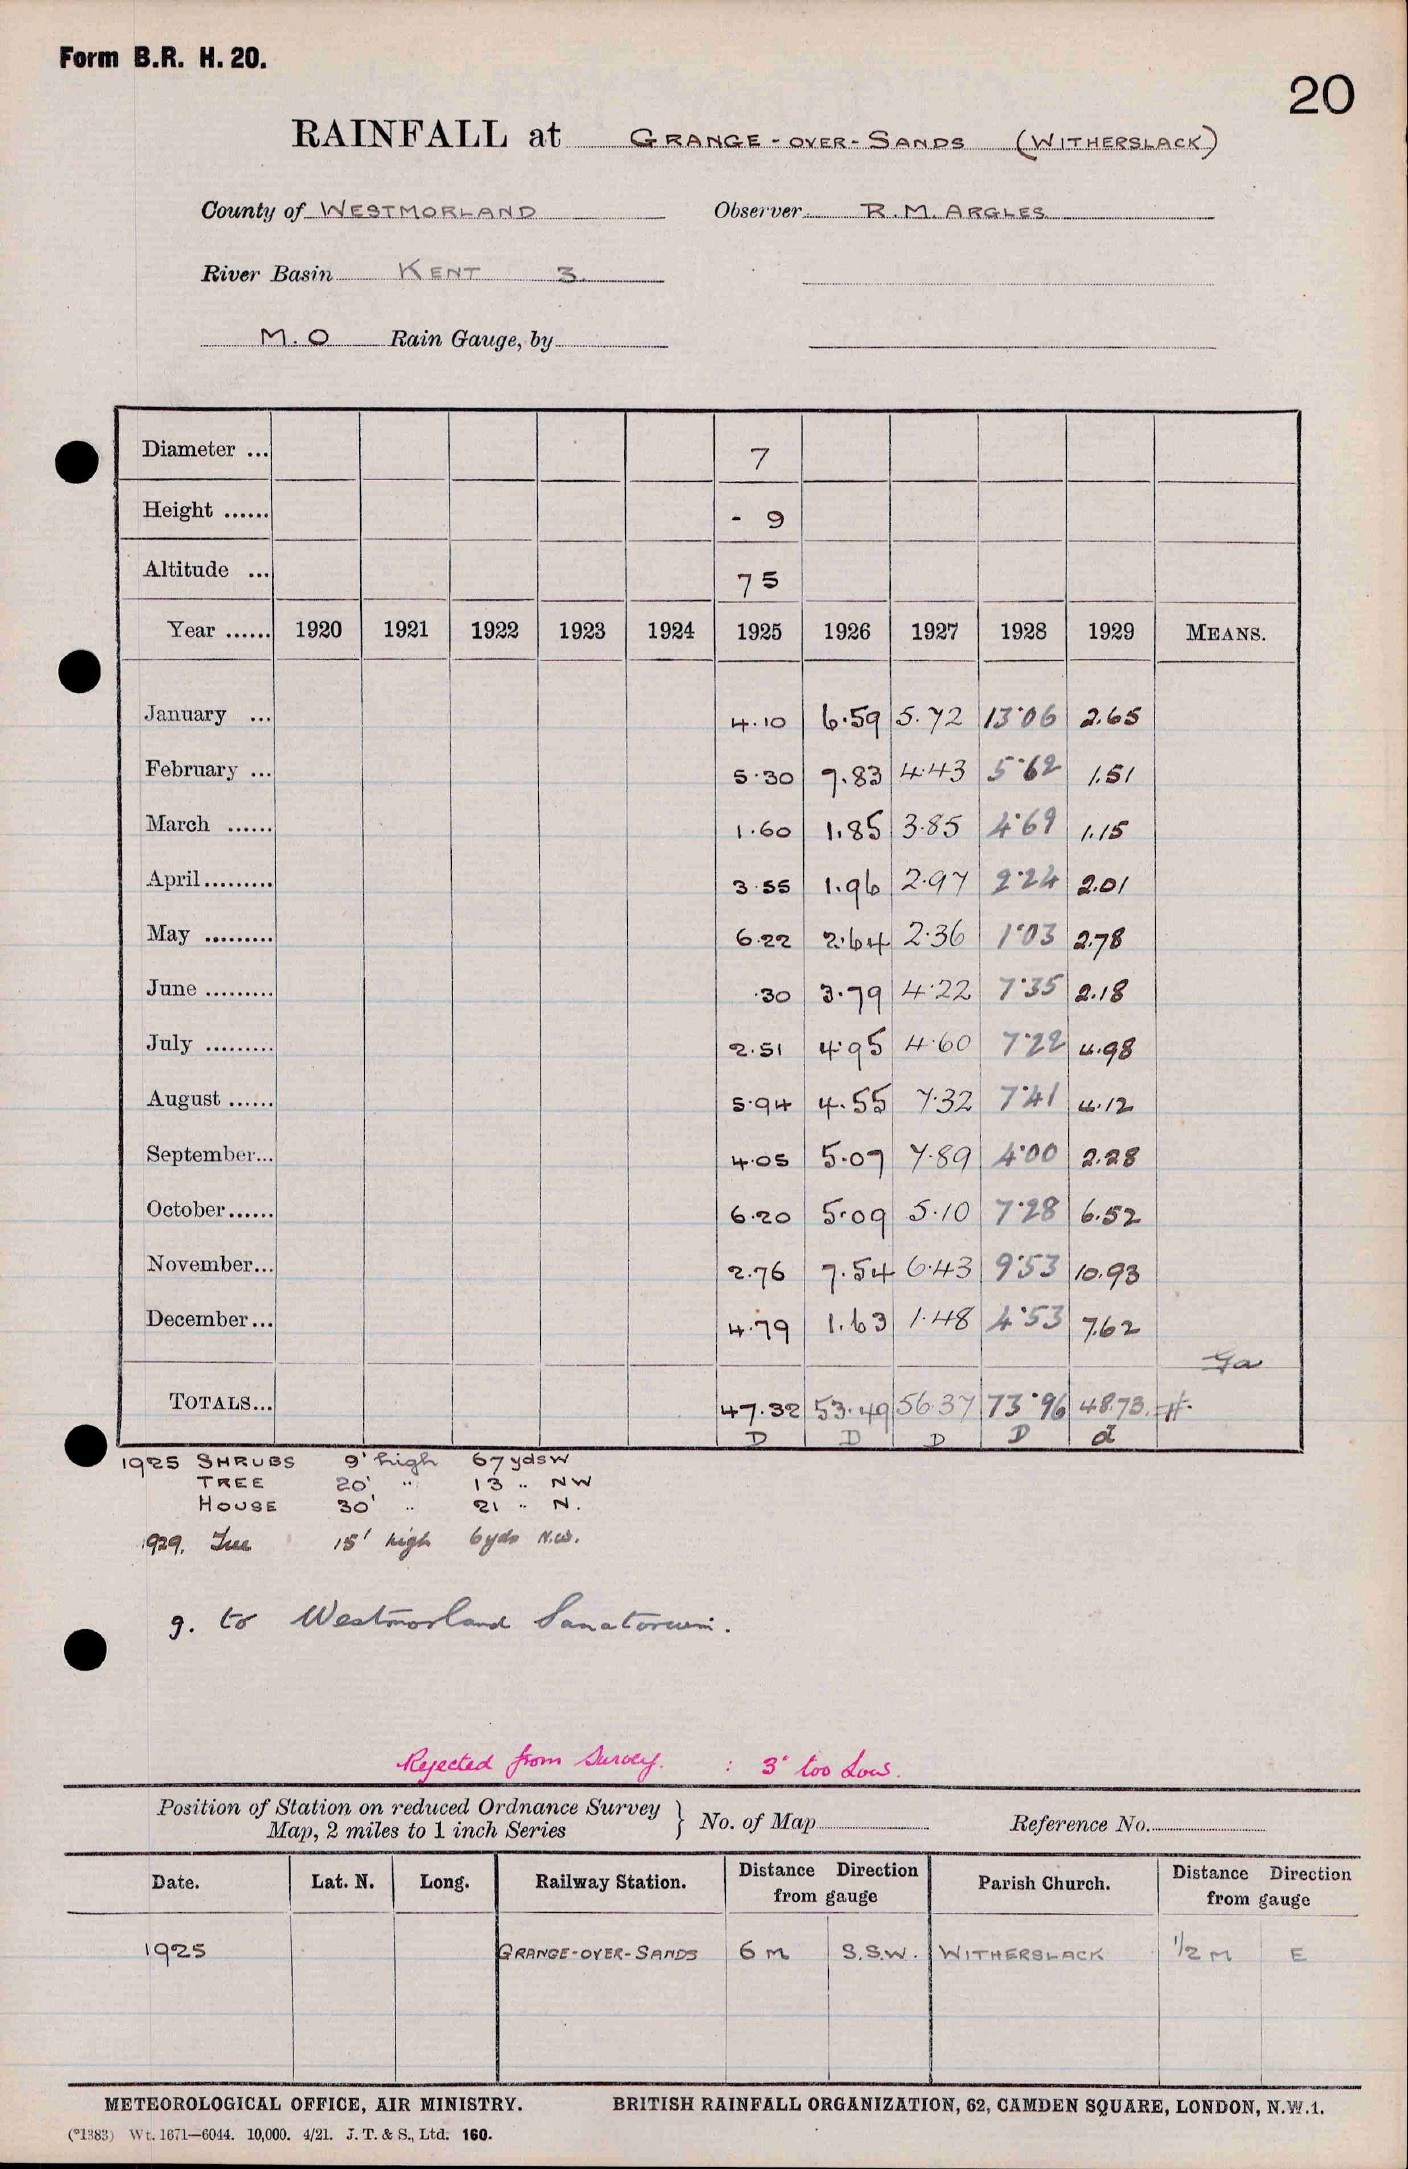 Form B.R. H. 20.
20
RAINFALL at GRANGE-OVER-SANDS (WITHERSLACK)
County of WESTMORLAND Observer R.M. ARGLES
River Basin KENT 3.
M.O Rain Gauge, by
Diameter ... 7
Height ...... - 9
Altitude ... 75
Year ...... 1920 1921 1922 1923 1924 1925 1926 1927 1928 1929 MEANS.
January ... 4.10 6.59 5.72 13.06 2.65
February ... 5.30 7.83 4.43 5.62 1.51
March ...... 1.60 1.85 3.85 4.69 1.15
April ......... 3.55 1.96 2.97 2.24 2.01
May ......... 6.22 2.64 2.36 1.03 2.78
June ......... .30 3.79 4.22 7.35 2.18
July ......... 2.51 4.95 4.60 7.22 4.98
August ...... 5.94 4.55 7.32 7.41 4.12
September... 4.05 5.07 7.89 4.00 2.28
October...... 6.20 5.09 5.10 7.28 6.52
November... 2.76 7.54 6.43 9.53 10.93
December... 4.79 1.63 1.48 4.53 7.62
Ga
TOTALS... 47.32 53.49 56.37 73.96 48.73
D D D D d
1925 SHRUBS 9' high 67 yds W
TREE 20' " 13 " NW
HOUSE 30' " 21 " N.
1929. Tree 15' high 6 yds N.W.
g. to Westmorland Sanatorium.
Rejected from Survey. : 3" too low.
Position of Station on reduced Ordnance Survey
Map, 2 miles to 1 inch Series } No. of Map Reference No.
Date. Lat. N. Long. Railway Station. Distance Direction from gauge Parish Church. Distance Direction from gauge
1925 GRANGE-OVER-SANDS 6 M S.S.W. WITHERSLACK 1/2 M E
METEOROLOGICAL OFFICE, AIR MINISTRY. BRITISH RAINFALL ORGANIZATION, 62, CAMDEN SQUARE, LONDON, N.W.1.
(*1383) Wt. 1671—6044. 10,000. 4/21. J. T. & S., Ltd. 160.